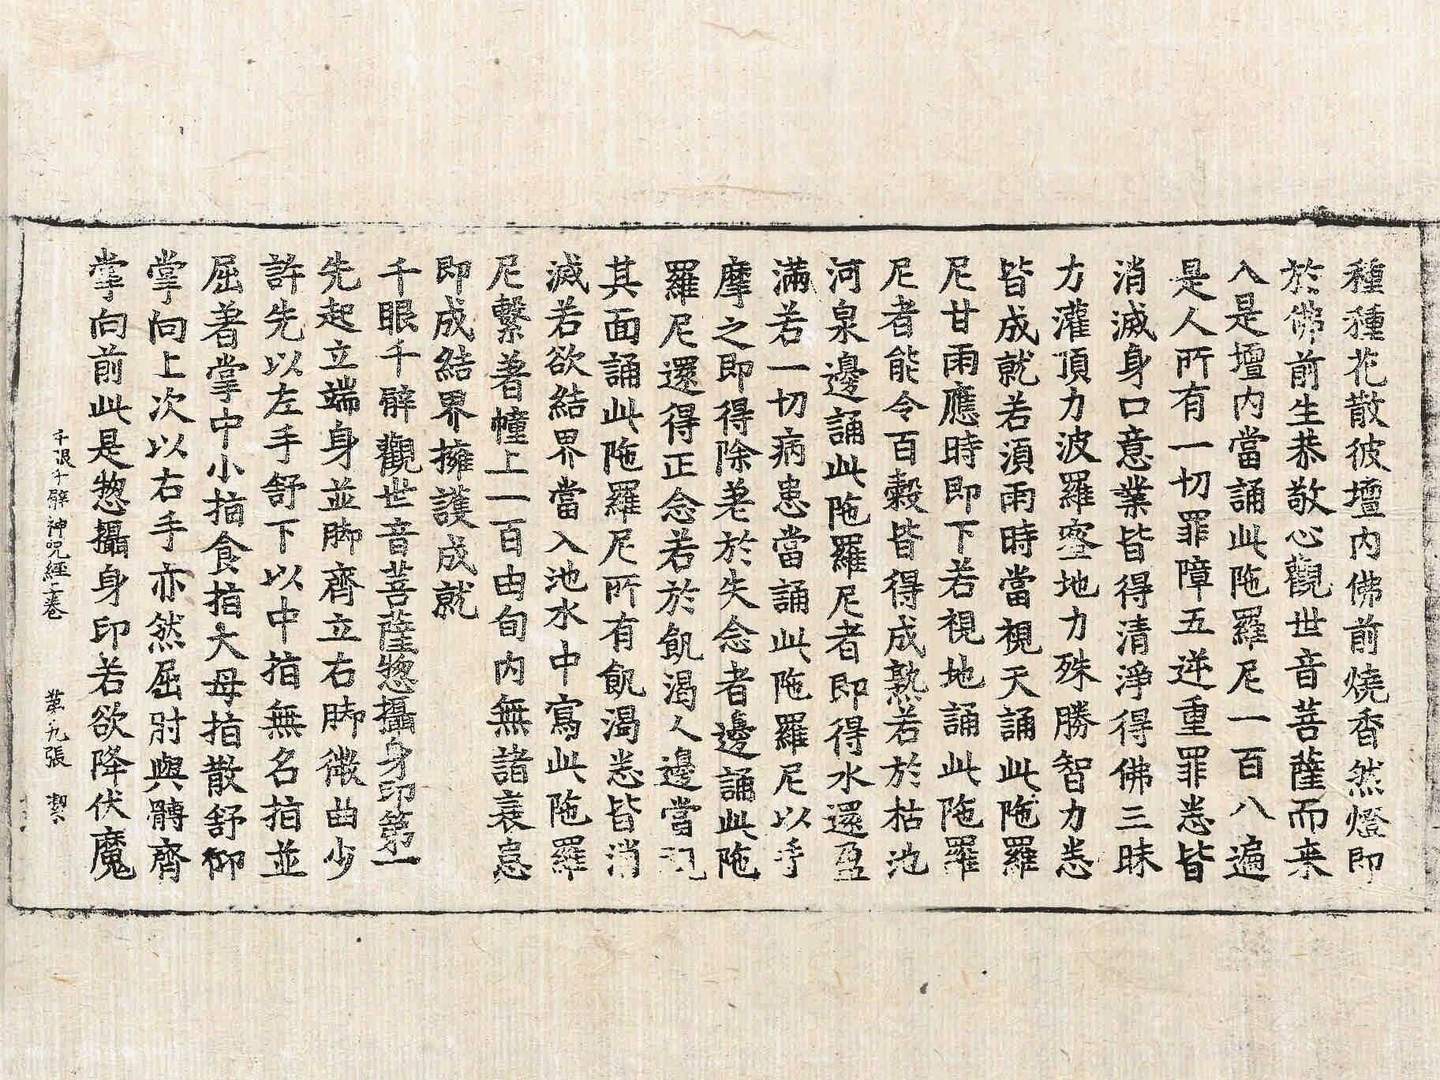 種種花散彼壇內佛前燒香然燈即
於佛前生恭敬心觀世音菩薩而来
入是壇內當誦此陁羅尼一百八遍
是人所有一切罪障五逆重罪悉皆
消滅身口意業皆得清淨得佛三昧
力灌頂力波羅蜜地力殊勝智力悉
皆成就若湏雨時當視天誦此陁羅
尼甘雨應時即下若視地誦此陁羅
尼者能令百穀皆得成熟若於枯池
河泉邊誦此陁羅尼者即得水還盈
滿若一切病患當誦此陁羅尼以手
摩之即得除差於失念者邊誦此陁
羅尼還得正念若於飢渴人邊當
其面誦此陁羅尼所有飢渴悉皆消
滅若欲結界當入池水中寫此陁羅
尼繫著幢上一百由旬內無諸衰患
即成結界擁護成就
千眼千臂觀世音菩薩揔攝身印第一
先起立端身並脚齊立右脚微曲少
許先以左手舒下以中指無名指並
屈著掌中小指食指大母指散舒仰
掌向上次以右手亦然屈肘與髆齊
掌向前此是揔攝身印若欲降伏魔
千眼千臂神呪經上卷 第九張